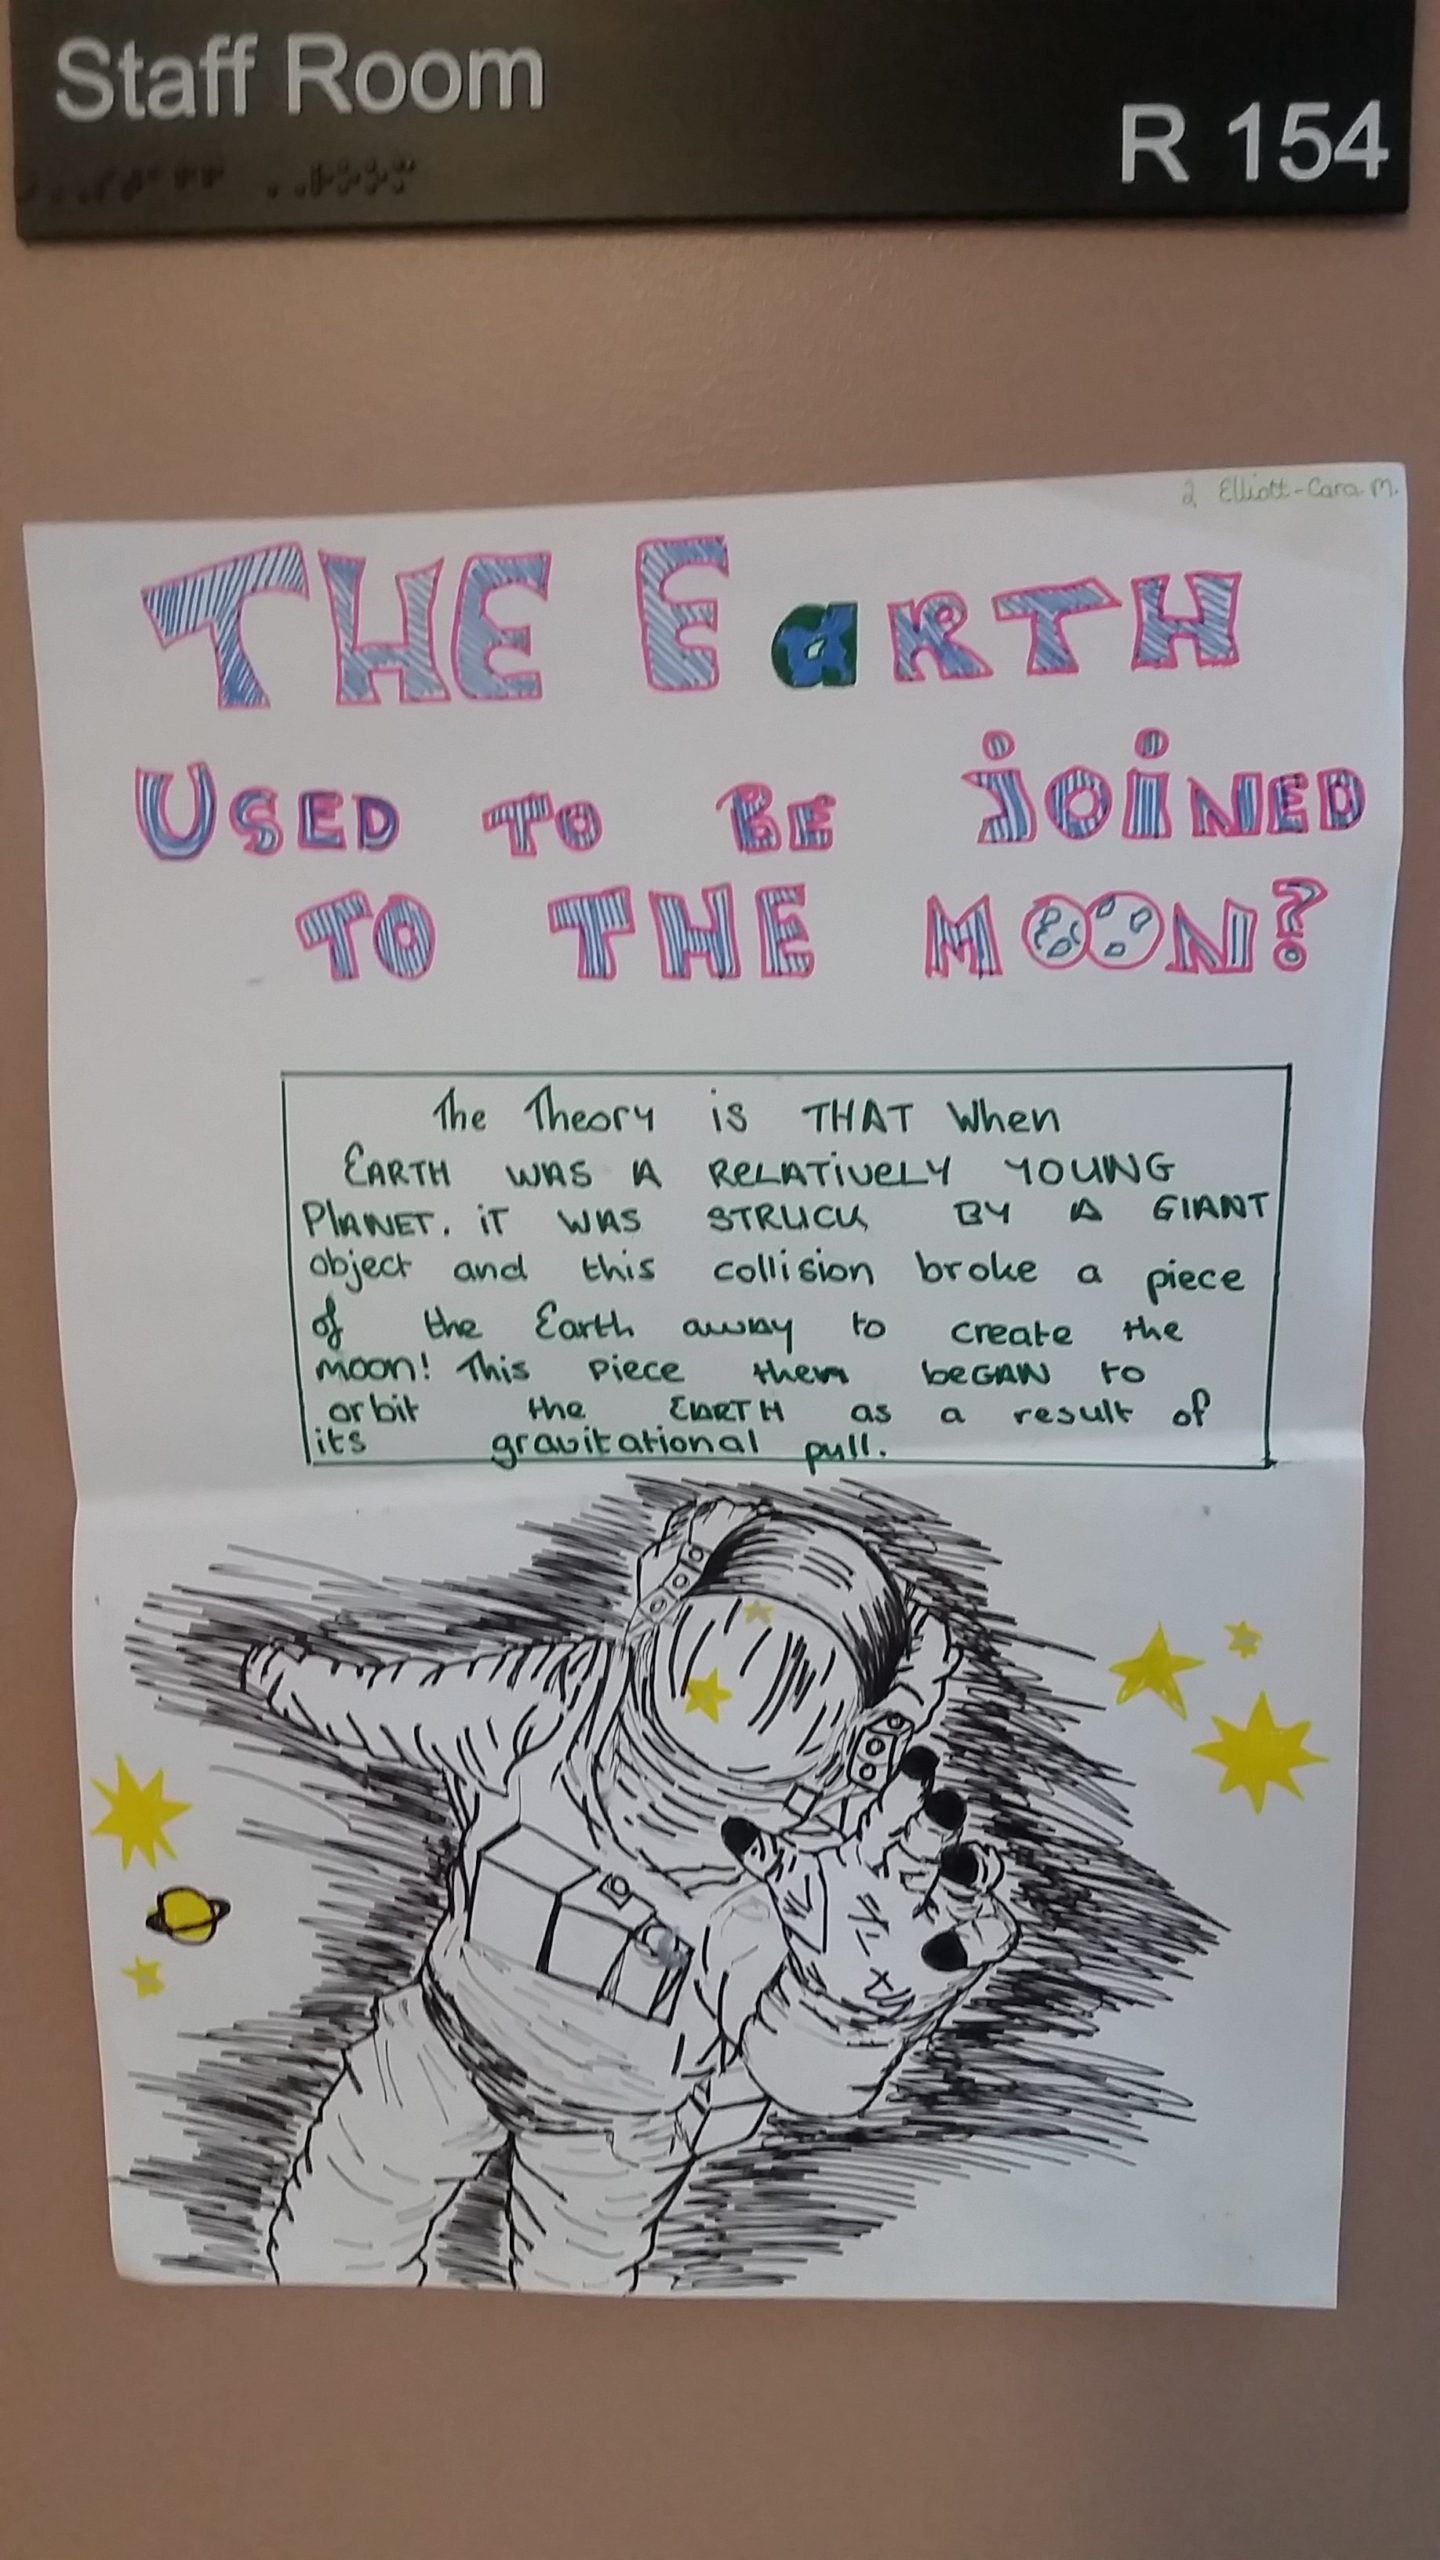 Staff Room
R 154
2 Elliott-Cara M.
THE EaRTH
USED TO BE JOiNED
TO THE MOON?
The Theory is THAT When
EARTH WAS A RELATiVeLY YOUNG
PlANET. iT WAS STRUCK BY A GIANT
object and this collision broke a piece
of the Earth away to create the
moon! This piece then beGAN to
orbit the EARTH as a result of
its gravitational pull.